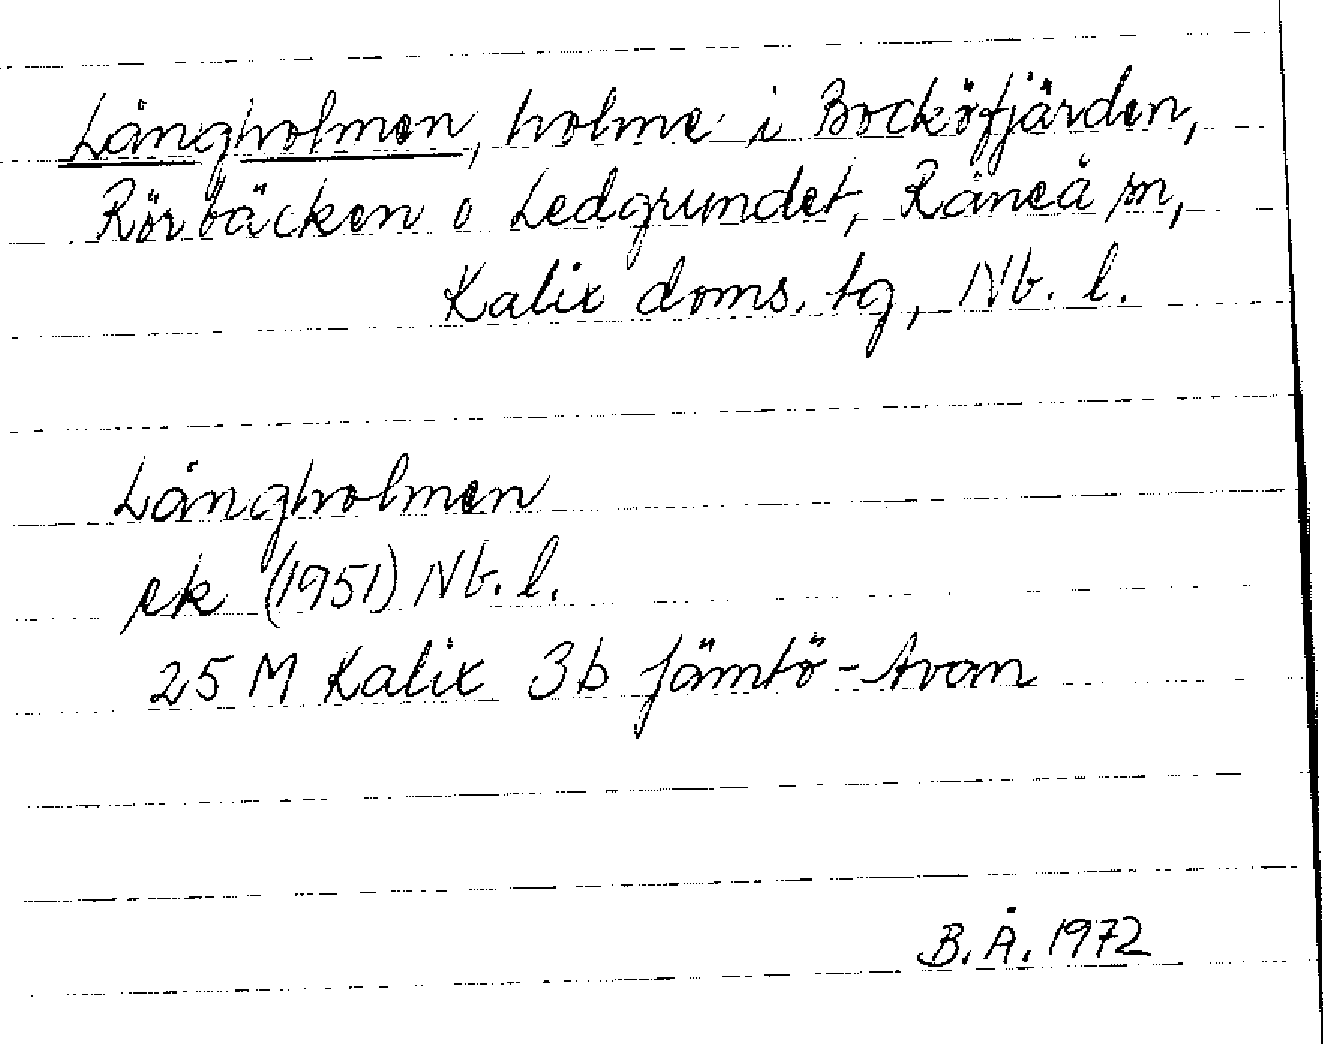 Långholmen, holme i Bocköfjärden,
Rörbäcken o Ledgrundet, Råneå sn,
Kalix doms. tg, Nb. l.
Långholmen
ek (1951) Nb. l.
25 M Kalix 3b Jämtö-Avan
B.Å. 1972